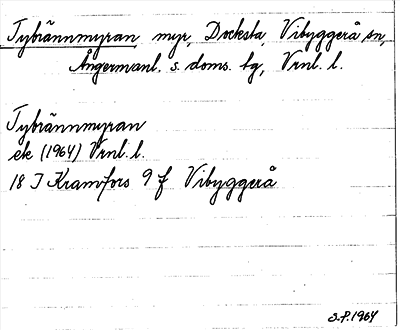 Tybrännmyran, myr, Docksta, Vibyggerå sn,
Ångermanl. s. doms. lg, Vrnl. l.
Tybrännmyran
ek (1964) Vrnl. l.
18 J Kramfors 9 f Vibyggerå
S.P. 1964